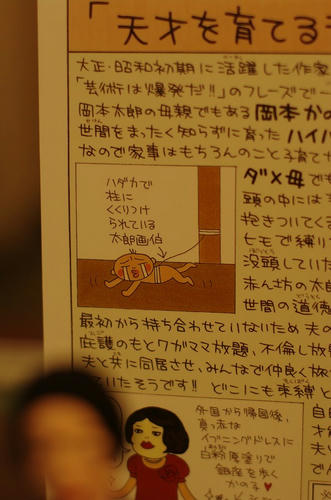 「天才を育てる
大正・昭和初期に活躍した作家
「芸術は爆発だ!!」のフレーズで
岡本太郎の母親でもある岡本か
世間をまったく知らずに育ったハイ
なので家事はもちろんのこと子育て
ハダカで
柱に
くくりつけ
られている
太郎画伯
ダメ母でも
頭の中には
抱きついてく
ヒモで縛り
没頭してい
赤ん坊の太
世間の道徳
最初から持ち合わせていないため夫の
庇護のもとワガママ放題、不倫し放
夫と共に同居させ、みんなで仲良く旅
ていたそうです!!どこにも束縛
外国から帰国後、
真っ赤な
イブニングドレスに
白粉厚塗りで
銀座を歩く
かの子♥